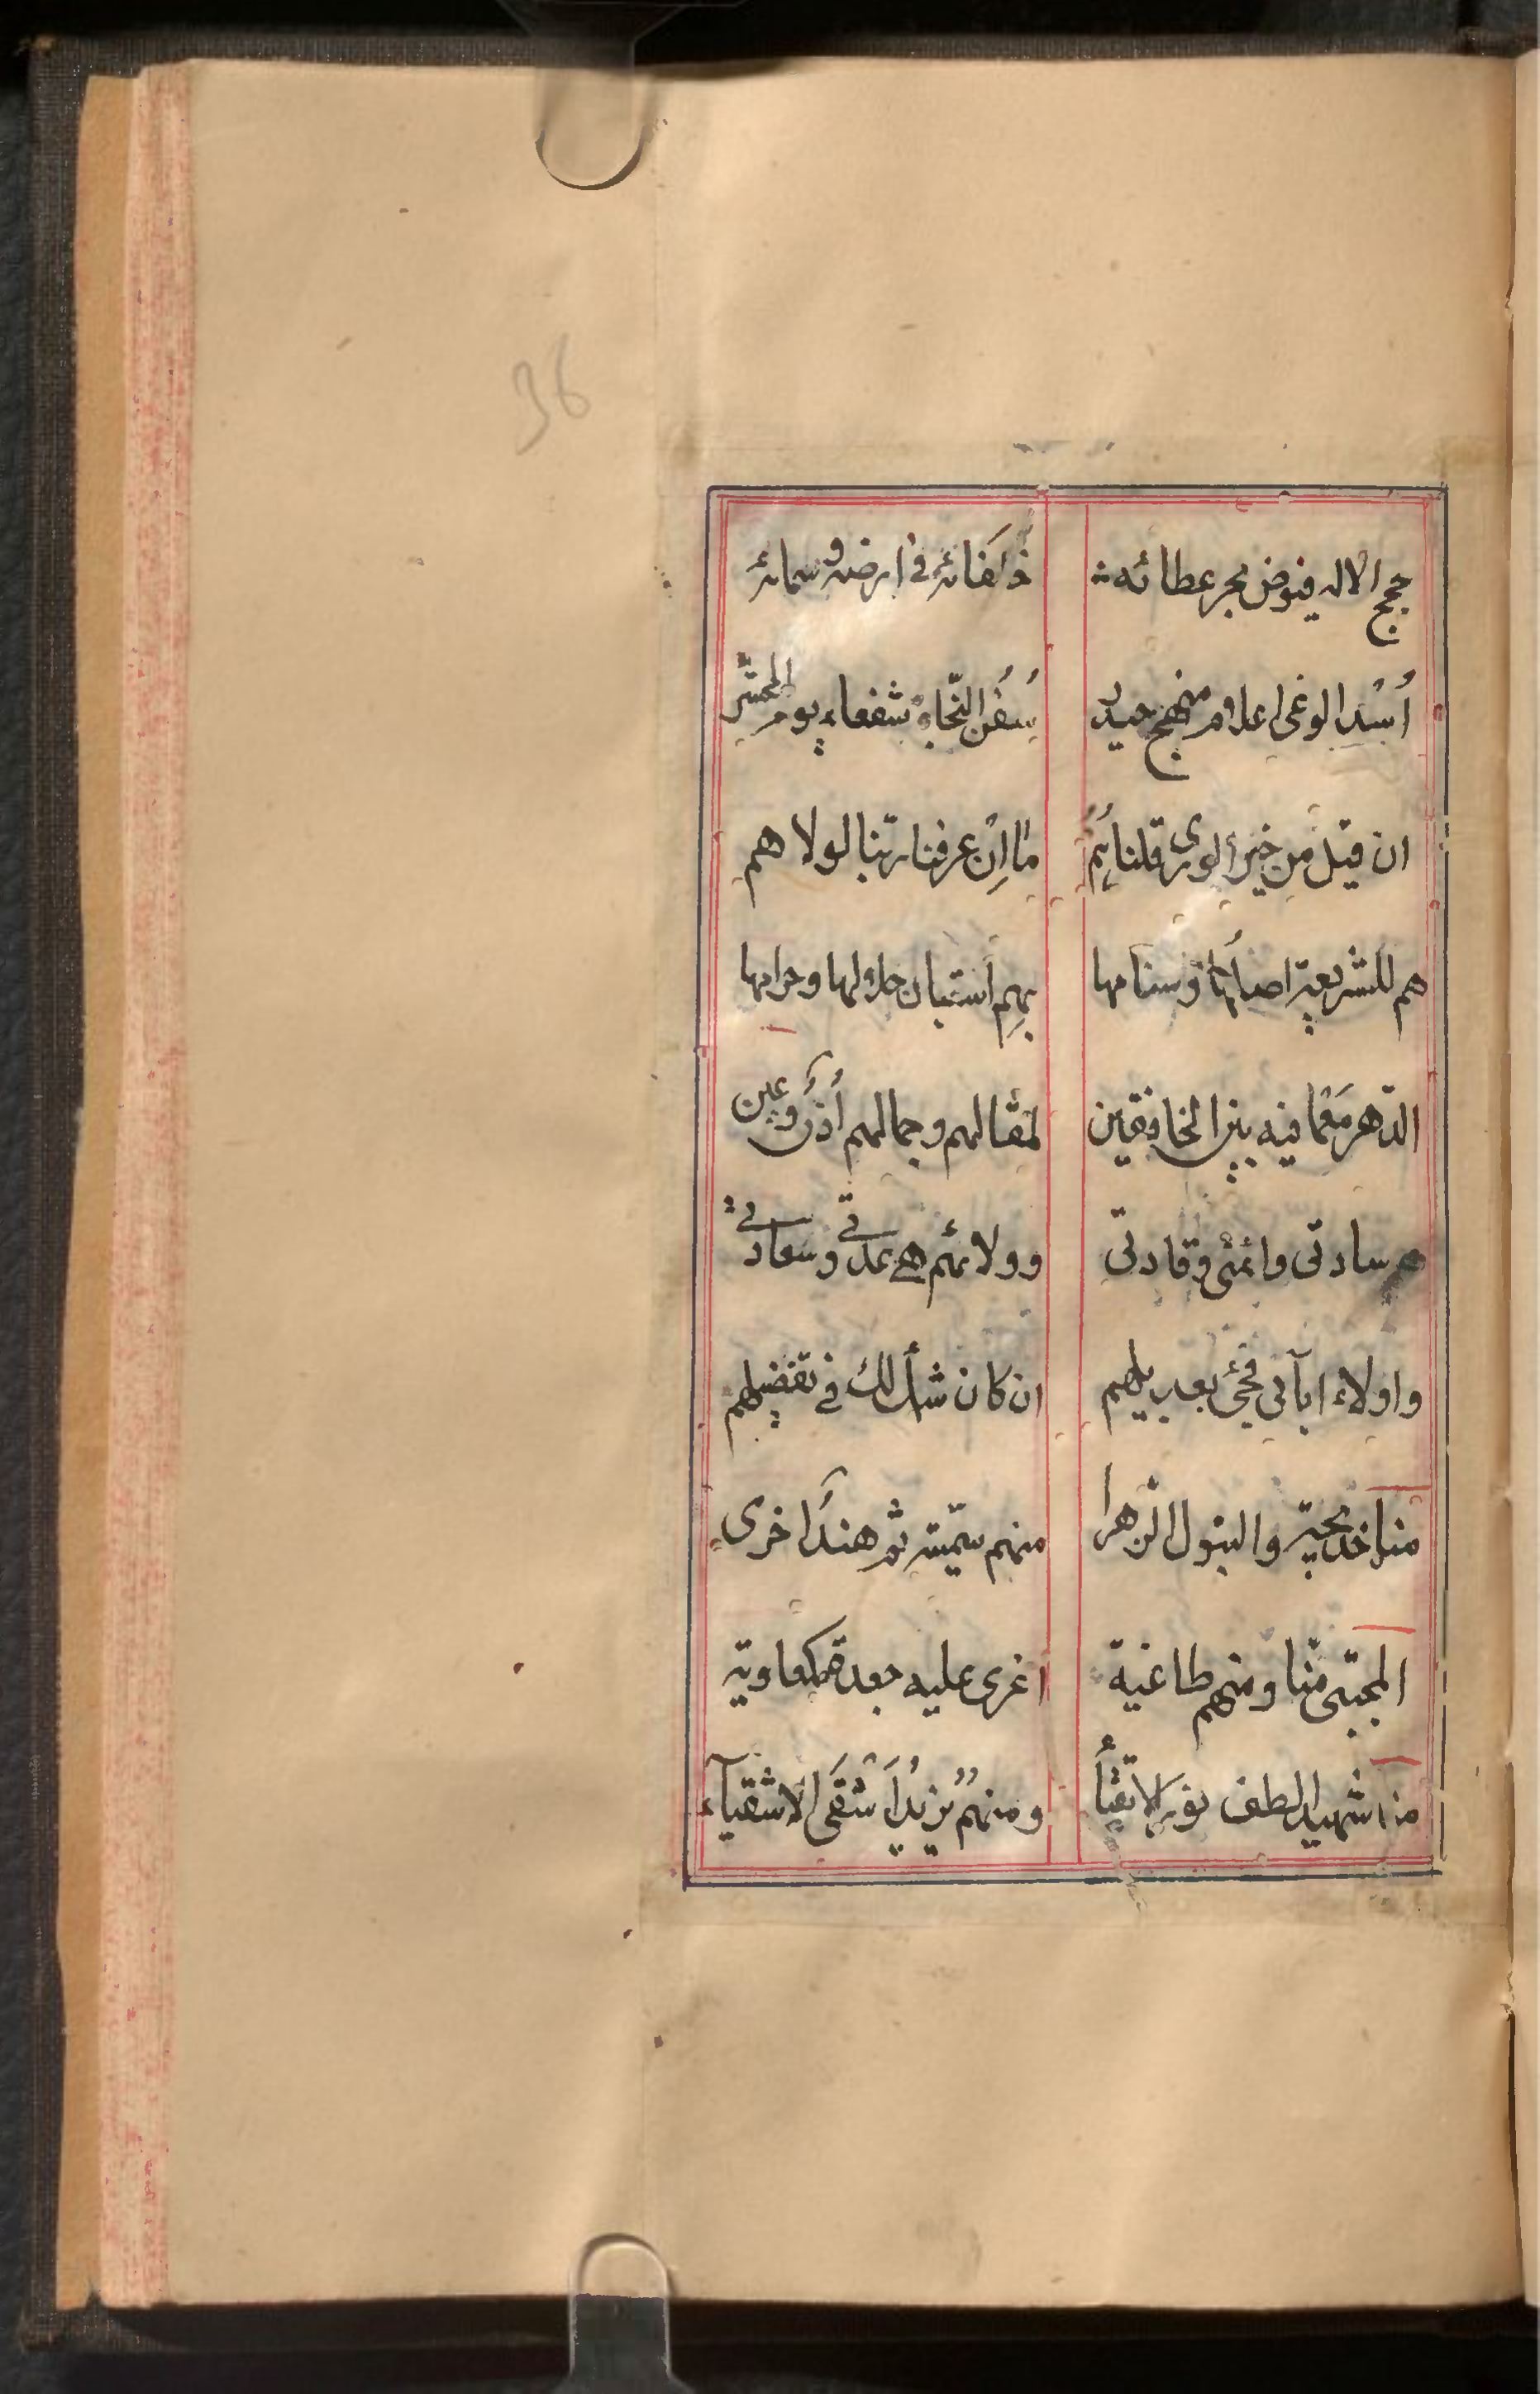 36
حجج الاله فيوض بحر عطائه خلفائه في ارضه و سمائه
أُسْد الوغى اعلام منهج حيدر سُفُن النّجاة شفعاء يوم المحشر
ان قيل من خير الورى قلنا هُمُ ما اِنْ عرفنا ربّنا لولا هم
هم للشريعة اصلُها وسنامها بهِم استبان حلالها وحرامها
الدّهر مَعْ ما فيه بين الخافقين لمقالهم وجمالهم أُذُن وعين
هم سادتى وائمتى وقادتى وولائهم هى عدّتي وسعادتي
واولاء ابآئى فجئ بعديلهم ان كان شأن لك في تفضيلهم
منا خديجة والبتول الزهرا منهم سميّة ثم هندَ اخرى
المجتبى منّا ومنهم طاغية اغرى عليه جعدة كمعاوية
منا شهيد الطف نور الاتقيأ ومنهمُ يزيدُ اَشْقَى الاشقيآء